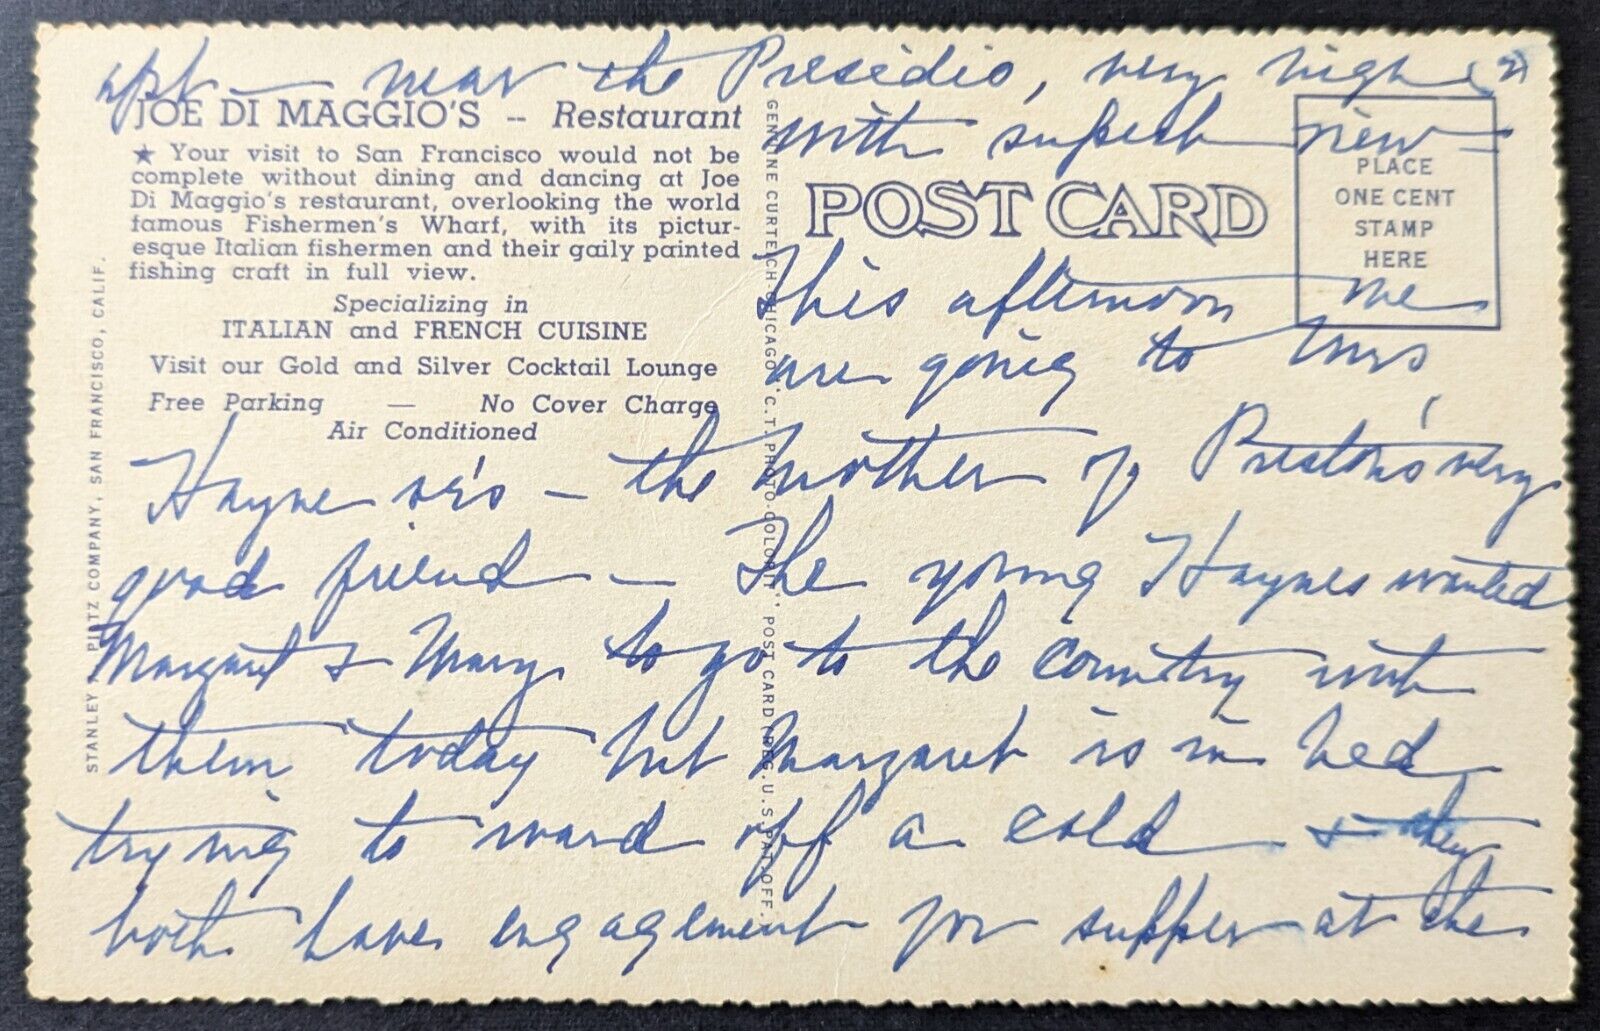 apt — near the Presidio, very high (2)
with superb view —
JOE DI MAGGIO'S -- Restaurant
★ Your visit to San Francisco would not be
complete without dining and dancing at Joe
Di Maggio's restaurant, overlooking the world
famous Fishermen's Wharf, with its pictur-
esque Italian fishermen and their gaily painted
fishing craft in full view.
Specializing in
ITALIAN and FRENCH CUISINE
Visit our Gold and Silver Cocktail Lounge
Free Parking — No Cover Charge
Air Conditioned
STANLEY A. PILTZ COMPANY, SAN FRANCISCO, CALIF.
GENUINE CURTEICH-CHICAGO "C.T. PHOTO-COLORIT" POST CARD (REG. U.S. PAT. OFF.)
POST CARD
PLACE
ONE CENT
STAMP
HERE
This afternoon we
are going to Mrs
Hayne's — the mother of Preston's very
good friend — The young Haynes wanted
Margaret & Mary to go to the country with
them today but Margaret is in bed
trying to ward off a cold & they
both have engagement for supper at the